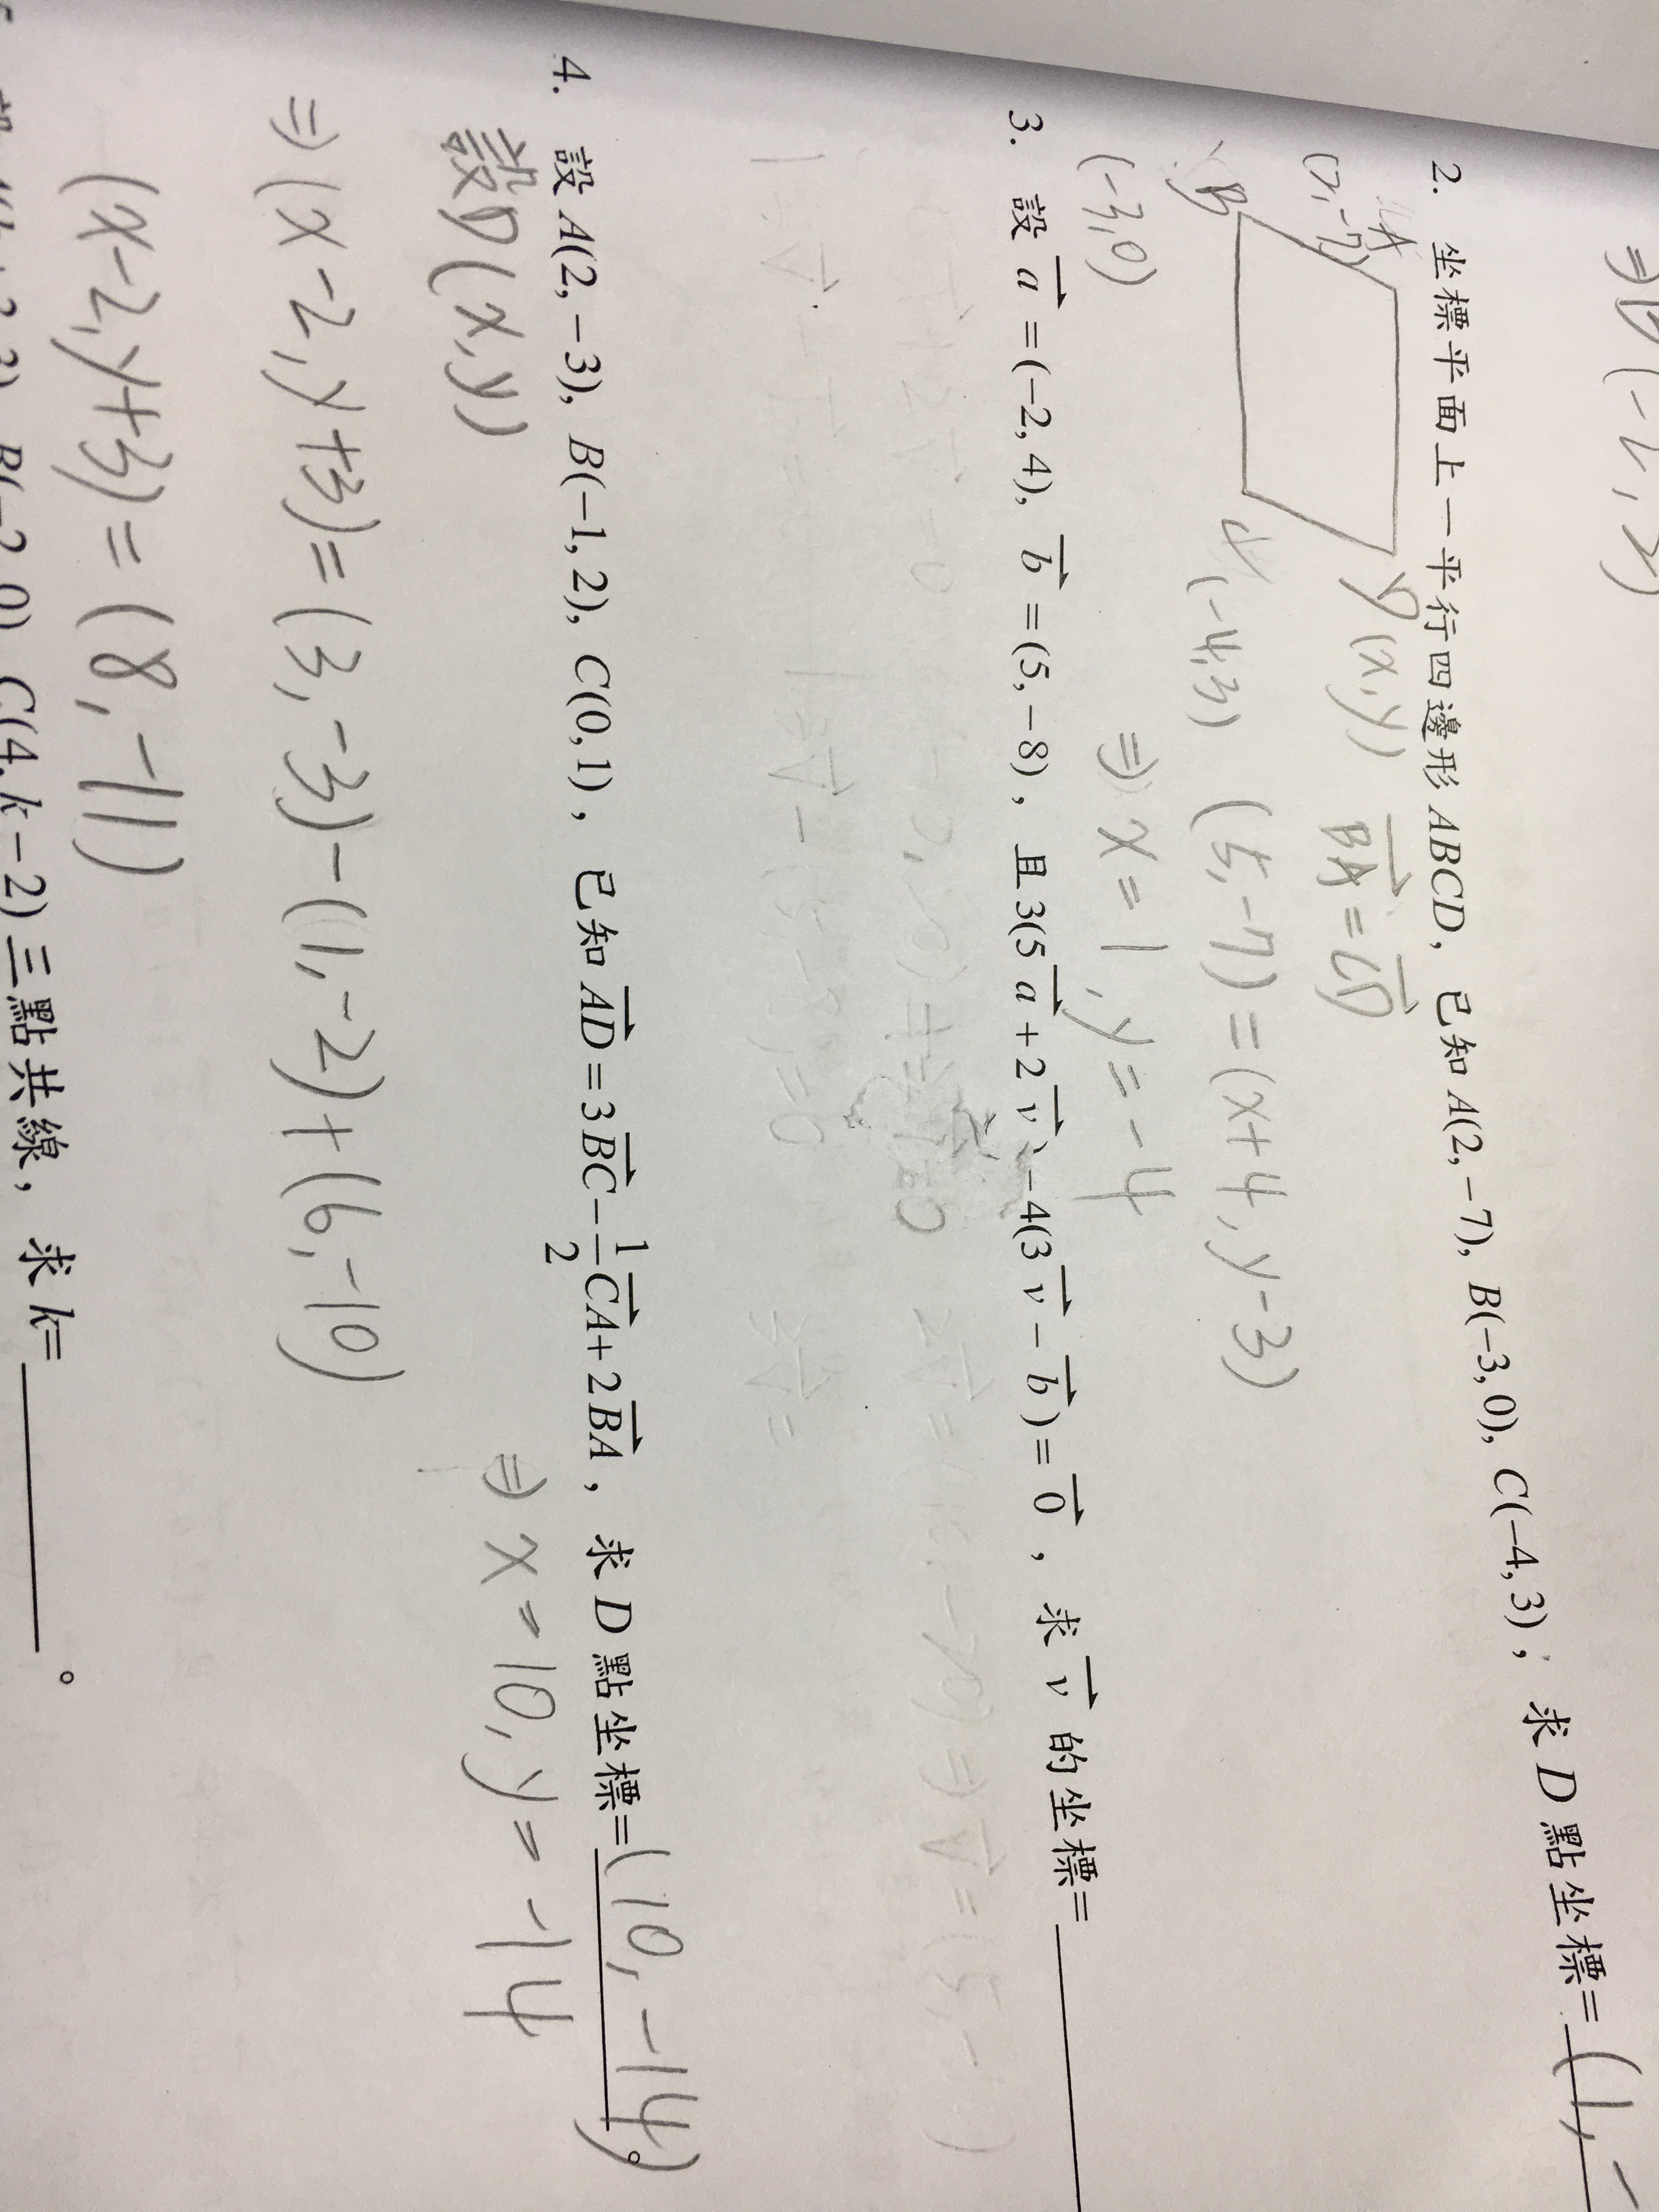 ⇒D(-2, 2)
2. 坐標平面上一平行四邊形ABCD，已知A(2,−7), B(−3,0), C(−4,3)；求D點坐標=(1,-
A
(2,-7)
D(x,y)
BA=CD
B
C(-4,3)
(5,-7)=(x+4,y-3)
(-3,0)
⇒x=1,y=-4
3. 設a=(−2,4), b=(5,−8)，且3(5a+2v)−4(3v−b)=0，求v的坐標=
4. 設A(2,−3), B(−1,2), C(0,1)，已知AD=3BC−1/2CA+2BA，求D點坐標=(10,-14)。
設D(x,y)
⇒x=10,y=-14
⇒(x-2,y+3)=(3,-3)-(1,-2)+(6,-10)
(x-2,y+3)=(8,-11)
C(4,k−2)三點共線，求k=。